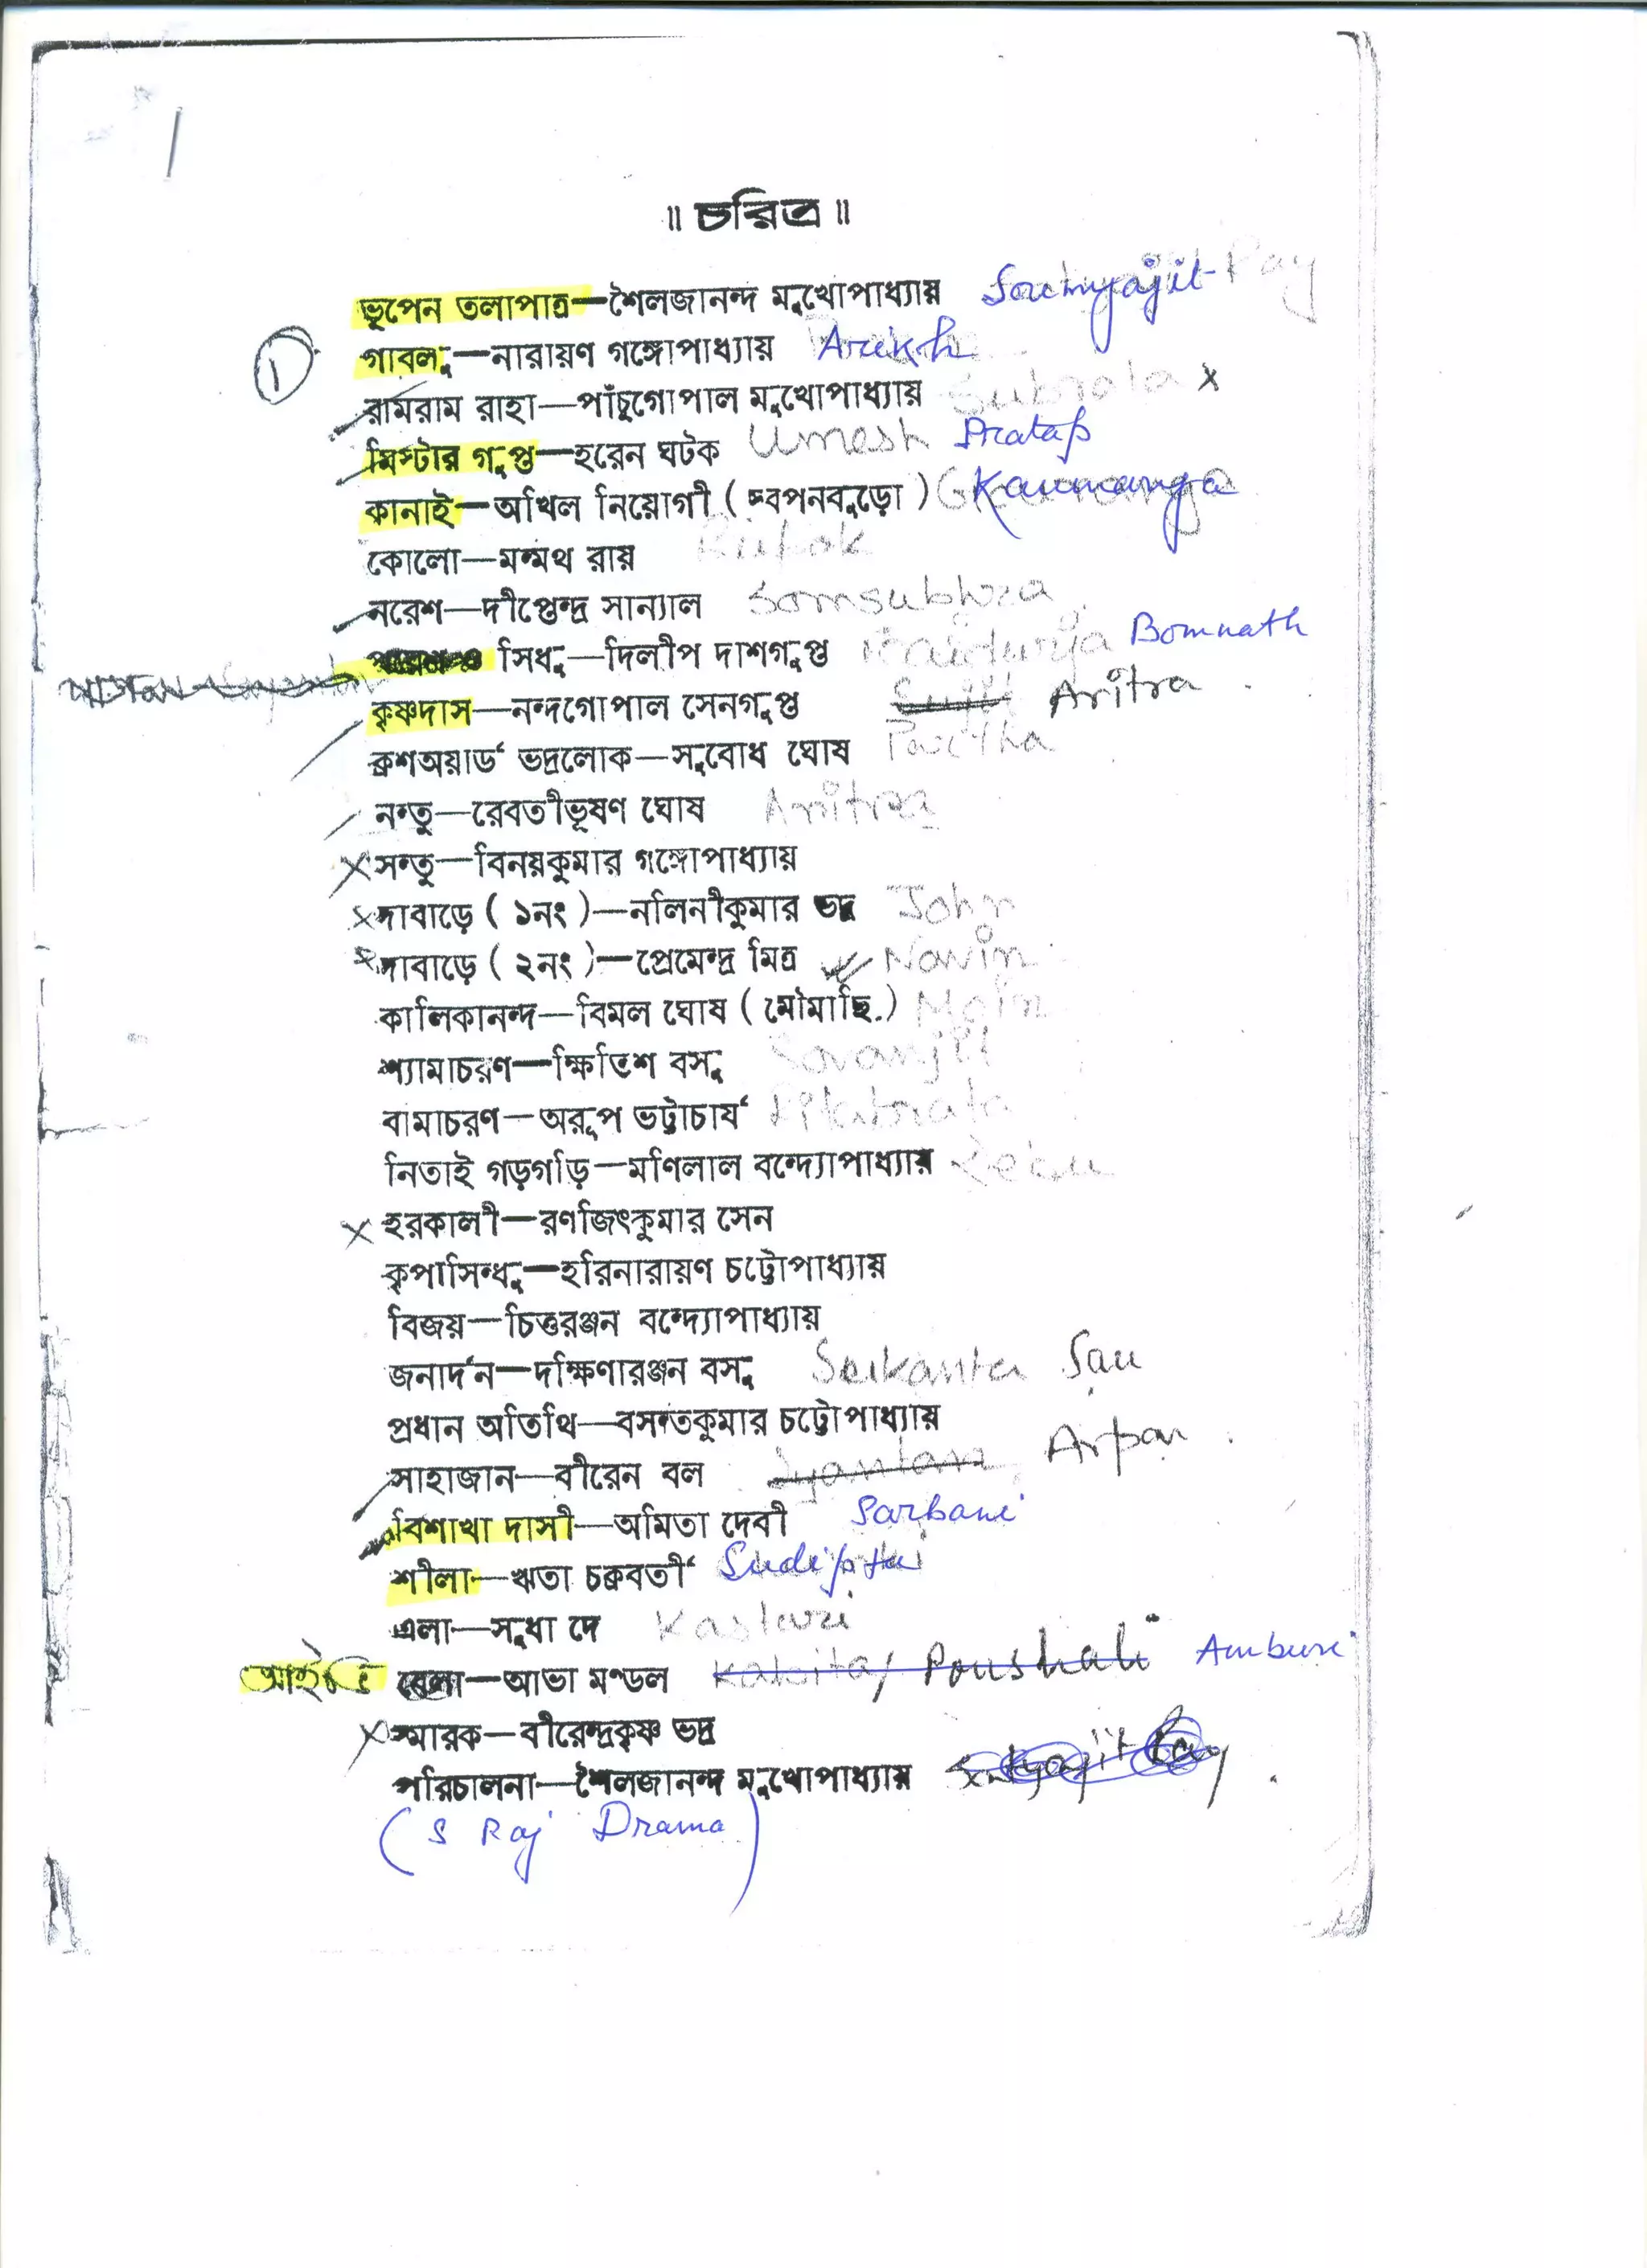 ॥ চরিত্র ॥
ভূপেন তলাপাত্র—শৈলজানন্দ মুখোপাধ্যায় Soumyajit Ray
① গাবলু—নারায়ণ গঙ্গোপাধ্যায়
রামরাম রাহা—পাঁচুগোপাল মুখোপাধ্যায় Subrata x
মিস্টার গুপ্ত—হরেন ঘটক Umesh Pratap
কানাই—অখিল নিয়োগী ( স্বপনবুড়ো )
কেলো—মন্মথ রায়
নরেশ—দীপ্তেন্দ্র সান্যাল Somsubhra
সিধু—দিলীপ দাশগুপ্ত Bomnath
কৃষ্ণদাস—নন্দগোপাল সেনগুপ্ত Aritra
ক্রশঅয়ার্ড ভদ্রলোক—সুবোধ ঘোষ Partha
নন্তু—রেবতীভূষণ ঘোষ Aritra
সন্তু—বিনয়কুমার গঙ্গোপাধ্যায়
দাবাড়ে ( ১নং )—নলিনীকুমার ভদ্র John
দাবাড়ে ( ২নং )—প্রেমেন্দ্র মিত্র Navin
কালিকানন্দ—বিমল ঘোষ ( মৌমাছি )
শ্যামাচরণ—ক্ষিতিশ বসু
বামাচরণ—অরূপ ভট্টাচার্য
নিতাই গড়গড়ি—মণিলাল বন্দ্যোপাধ্যায়
হরকালী—রণজিৎকুমার সেন
কৃপাসিন্ধু—হরিনারায়ণ চট্টোপাধ্যায়
বিজয়—চিত্তরঞ্জন বন্দ্যোপাধ্যায়
জনার্দন—দক্ষিণারঞ্জন বসু Srikanta Sau
প্রধান অতিথি—বসন্তকুমার চট্টোপাধ্যায়
সাহাজান—বীরেন বল Arpan
বিশাখা দাসী—অমিতা দেবী Sarbani
শীলা—ঋতা চক্রবর্তী Sudipta
এলা—সুধা দে Kasturi
বেলা—আভা মণ্ডল Poushali
স্মারক—বীরেন্দ্রকৃষ্ণ ভদ্র
পরিচালনা—শৈলজানন্দ মুখোপাধ্যায় Satyajit Ray
( S Raj Drama )